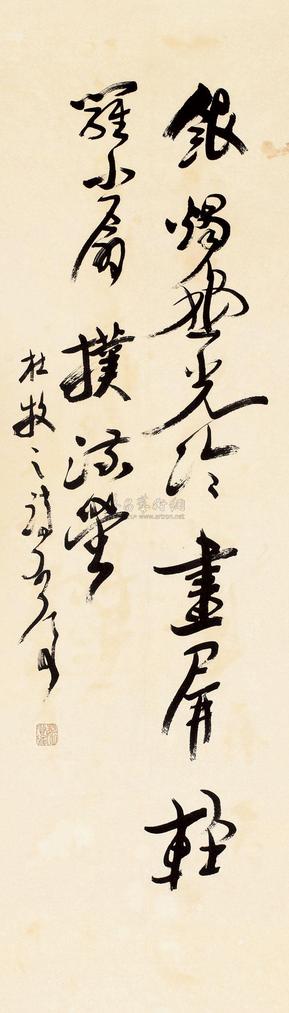 銀燭秋光冷畫屏輕
羅小扇撲流螢
杜牧之詩
www.artron.net